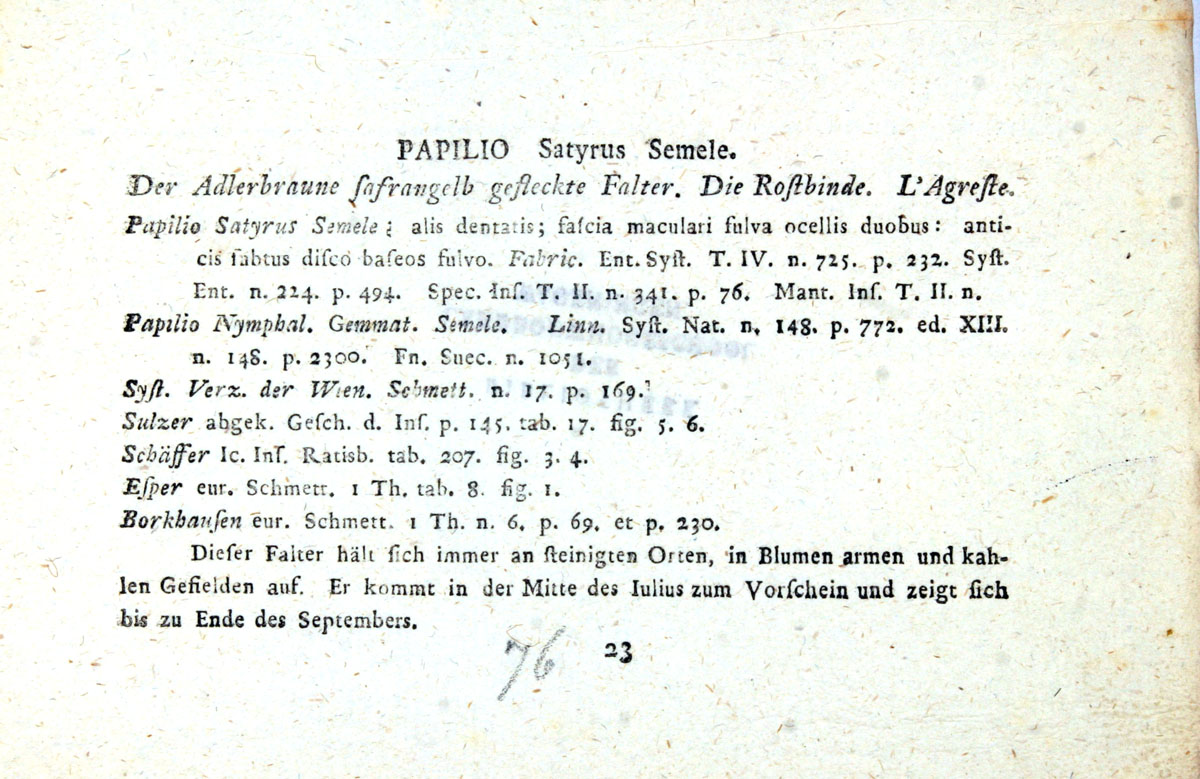 PAPILIO Satyrus Semele.
Der Adlerbraune ſafrangelb gefleckte Falter. Die Roſtbinde. L'Agreſte.
Papilio Satyrus Semele; alis dentatis; faſcia maculari fulva ocellis duobus: anti-
cis ſubtus diſco baſeos fulvo. Fabric. Ent. Syſt. T. IV. n. 725. p. 232. Syſt.
Ent. n. 224. p. 494. Spec. Inſ. T. II. n. 341. p. 76. Mant. Inſ. T. II. n.
Papilio Nymphal. Gemmat. Semele. Linn. Syſt. Nat. n. 148. p. 772. ed. XIII.
n. 148. p. 2300. Fn. Suec. n. 1051.
Syſt. Verz. der Wien. Schmett. n. 17. p. 169.
Sulzer abgek. Geſch. d. Inſ. p. 145. tab. 17. fig. 5. 6.
Schäffer Ic. Inſ. Ratisb. tab. 207. fig. 3. 4.
Eſper eur. Schmett. 1 Th. tab. 8. fig. 1.
Borkhauſen eur. Schmett. 1 Th. n. 6. p. 69. et p. 230.
Dieſer Falter hält ſich immer an ſteinigten Orten, in Blumen armen und kah-
len Gefielden auf. Er kommt in der Mitte des Iulius zum Vorſchein und zeigt ſich
bis zu Ende des Septembers.
76 23